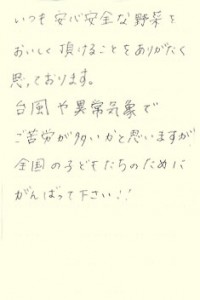 いつも安心安全な野菜を
おいしく頂けることをありがたく
思っております。
台風や異常気象で
ご苦労が多いかと思いますが
全国の子どもたちのために
がんばって下さい!!